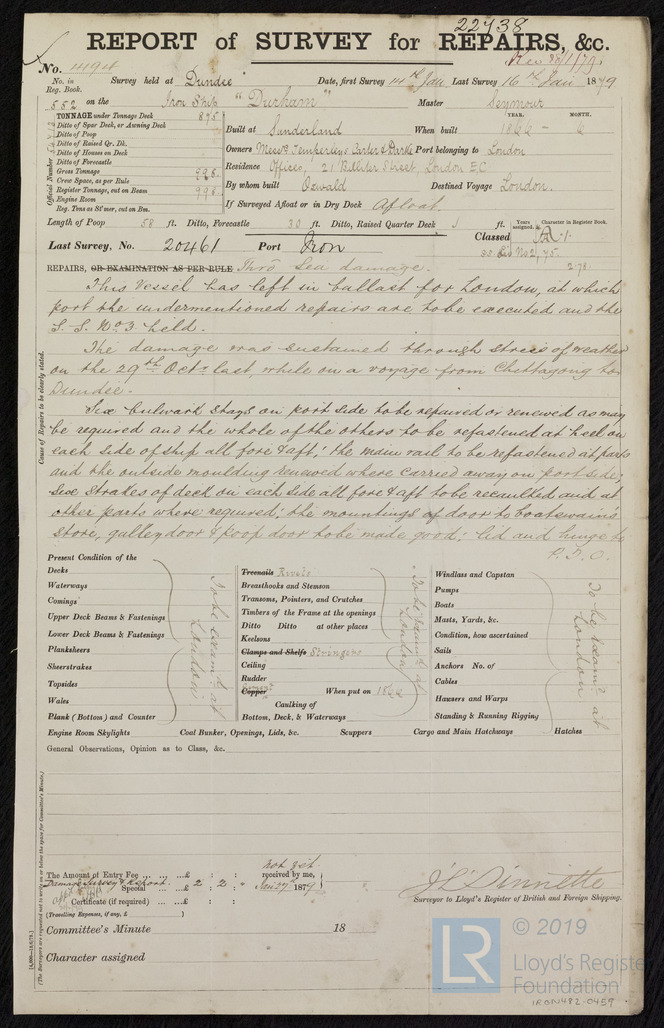 22438
REPORT of SURVEY for REPAIRS, &c.
No. Survey held at Dundee Date, first Survey 14th Jan Last Survey 16th Jan 1879
No. in Reg. Book.
552 on the Iron Ship "Durham" Master Seymour
TONNAGE under Tonnage Deck 895
Ditto of Spar Deck, or Awning Deck
Ditto of Poop
Ditto of Raised Qr. Dk.
Ditto of Houses on Deck
Ditto of Forecastle
Gross Tonnage 998
Crew Space, as per Rule
Register Tonnage, cut on Beam 998
Engine Room
Reg. Tons as St'mer, cut on Bm.
Official Number
YEAR. MONTH.
Built at Sunderland When built 1866 - 6
Owners Messrs Temperleys Carter & Darke Port belonging to London
Residence Offices, 21 Billiter Street, London E.C
By whom built Oswald Destined Voyage London.
If Surveyed Afloat or in Dry Dock Afloat.
Length of Poop 58 ft. Ditto, Forecastle 30 ft. Ditto, Raised Quarter Deck ft.
Years assigned. Character in Register Book.
Classed A1.
Last Survey, No. 20461 Port Iron
2.78
REPAIRS, OR EXAMINATION AS PER RULE Thro Sea damage.
This Vessel has left in ballast for London, at which
port the undermentioned repairs are to be executed and the
S.S. No 3 held.
The damage was sustained through stress of weather
on the 29th Octr last, while on a voyage from Chittagong to
Dundee.
Six bulwark stays on port side to be repaired or renewed as may
be required and the whole of the others to be refastened at heel on
each side of ship all fore & aft; the main rail to be refastened at parts
and the outside moulding renewed where carried away on port side;
Six strakes of deck on each side all fore & aft to be recaulked and at
other parts where required; the mountings of door to boatswain's
store, galley door & poop door to be made good; lid and hinge to
P.T.O.
Cause of Repairs to be clearly stated.
Present Condition of the
Decks
Waterways
Comings
Upper Deck Beams & Fastenings
Lower Deck Beams & Fastenings
Planksheers
Sheerstrakes
Topsides
Wales
Plank (Bottom) and Counter
To be examd at London
Treenails Rivets
Breasthooks and Stemson
Transoms, Pointers, and Crutches
Timbers of the Frame at the openings
Ditto Ditto at other places
Keelsons
Clamps and Shelfs Stringers
Ceiling
Rudder
Copper When put on 1866
Caulking of
Bottom, Deck, & Waterways
To be examd at London
Windlass and Capstan
Pumps
Boats
Masts, Yards, &c.
Condition, how ascertained
Sails
Anchors No. of
Cables
Hawsers and Warps
Standing & Running Rigging
To be examd at London
Engine Room Skylights Coal Bunker, Openings, Lids, &c. Scuppers Cargo and Main Hatchways Hatches
General Observations, Opinion as to Class, &c.
The Amount of Entry Fee £ : : not yet received by me,
Damage Survey & Report. Special £ 2 : 2 : " 1879
Certificate (if required) £ : :
(Travelling Expenses, if any, £ )
Surveyor to Lloyd's Register of British and Foreign Shipping.
Committee's Minute 18
Character assigned
(The Surveyors are requested not to write on or below the space for Committee's Minute.)
LR
© 2019
Lloyd's Register
Foundation
IRON482-0459